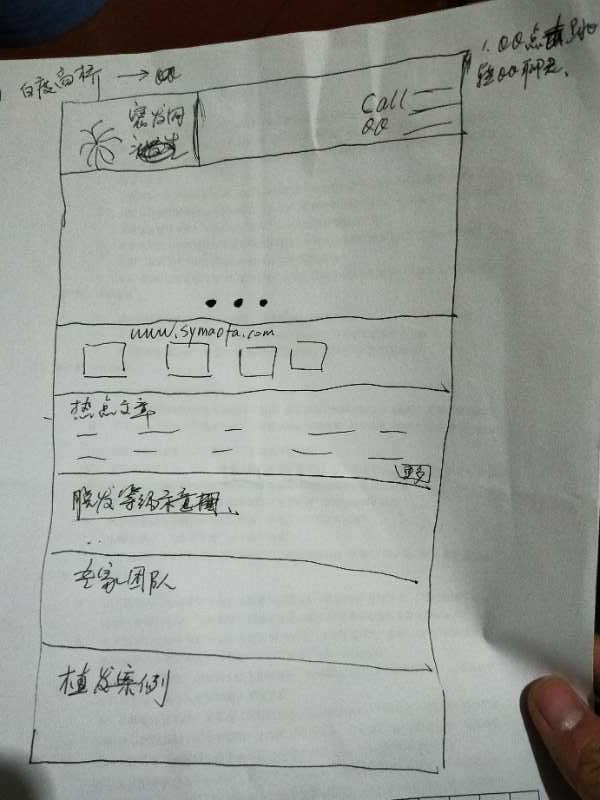 百度商桥 → QQ
1. QQ点击跳
转QQ聊天.
Call
QQ
www.symaofa.com
热点文章
更多
脱发等级示意图、
专家团队
植发案例